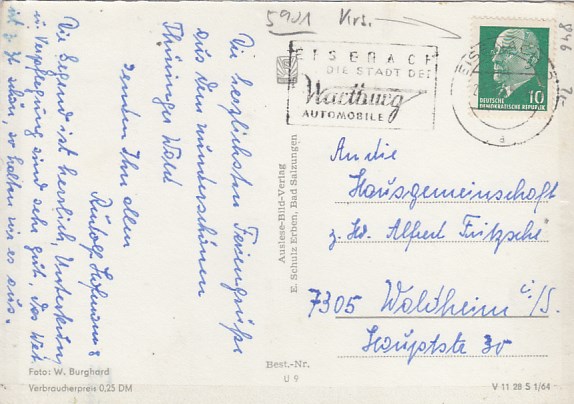 5901 Kirs.
8946
EISENACH
DIE STADT DER
Wartburg
AUTOMOBILE
DEUTSCHE
DEMOKRATISCHE REPUBLIK
10
Die herzlichsten Feriengrüße
aus dem wunderschönen
Thüringer Wald
senden Ihnen allen
Rudolf Hofmann &
Die Gegend ist herrlich, Unterkunft
u. Verpflegung sind sehr gut, das Wetter
ist z. Zt. schön, so halten wir es aus.
Auslese-Bild-Verlag
E. Schulz Erben, Bad Salzungen
An die
Hausgemeinschaft
z. Hd. Alfred Fritzsche
7305 Waldheim i/S.
Hauptstr 30
Foto: W. Burghard
Verbraucherpreis 0,25 DM
Best.-Nr.
U 9
V 11 28 S 1/64